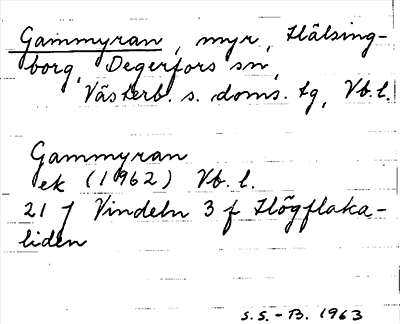 Gammyran, myr, Hälsing-
borg, Degerfors sn,
Västerb. s. doms. tg, Vb. l.
Gammyran
ek (1962) Vb. l.
21 J Vindeln 3 f Högflaka-
liden
S.S.-B. 1963